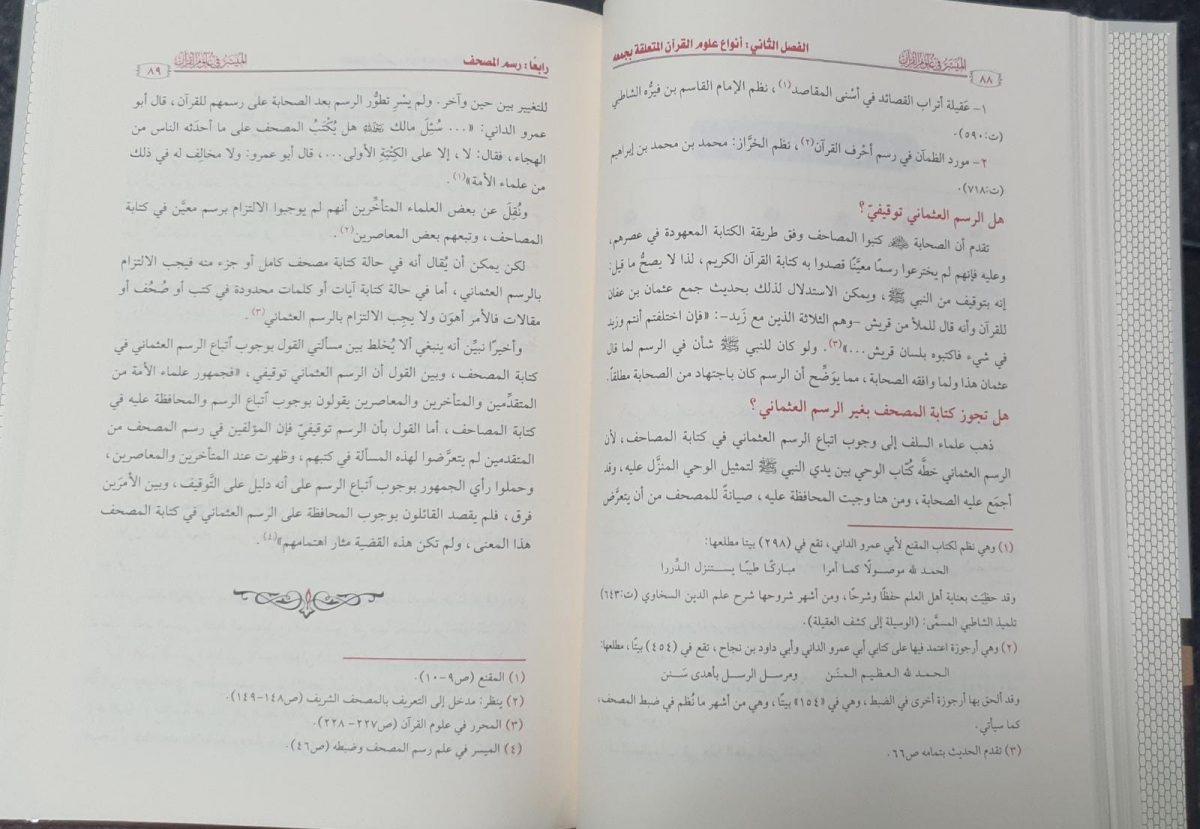 الميسر في علوم القرآن
٨٨
الفصل الثاني: أنواع علوم القرآن المتعلقة بجمعه
١- عَقيلة أتراب القصائد في أسْنى المقاصد(١)، نظم الإمام القاسم بن فيرُّه الشاطبي
(ت:٥٩٠).
٢- مورد الظمآن في رسم أحْرف القرآن(٢)، نظم الخرَّاز: محمد بن محمد بن إبراهيم
(ت:٧١٨).
هل الرسم العثماني توقيفيّ؟
تقدم أن الصحابة ﷺ كتبوا المصاحف وفق طريقة الكتابة المعهودة في عصرهم،
وعليه فإنهم لم يخترعوا رسمًا معيَّنًا قصدوا به كتابة القرآن الكريم، لذا لا يصحُّ ما قيل:
إنه بتوقيف من النبي ﷺ، ويمكن الاستدلال لذلك بحديث جمع عثمان بن عفان
للقرآن وأنه قال للملأ من قريش -وهم الثلاثة الذين مع زَيد-: «فإن اختلفتم أنتم وزيد
في شيء فاكتبوه بلسان قريش...»(٣). ولو كان للنبي ﷺ شأن في الرسم لما قال
عثمان هذا ولما وافقه الصحابة، مما يوَضِّح أن الرسم كان باجتهاد من الصحابة مطلقاً.
هل تجوز كتابة المصحف بغير الرسم العثماني؟
ذهب علماء السلف إلى وجوب اتباع الرسم العثماني في كتابة المصاحف، لأن
الرسم العثماني خطَّه كُتاب الوحي بين يدي النبي ﷺ لتمثيل الوحي المنزَّل عليه، وقد
أجمَع عليه الصحابة، ومن هنا وجبت المحافظة عليه، صيانةً للمصحف من أن يتعرَّض
(١) وهي نظم لكتاب المقنع لأبي عمرو الداني، تقع في (٢٩٨) بيتا مطلعها:
الحمد لله موصولًا كما أمرا مباركًا طيبًا يستنزل الدُّررا
وقد حظِيَت بعناية أهل العلم حفظًا وشرحًا، ومن أشهر شروحها شرح علم الدين السخاوي (ت:٦٤٣)
تلميذ الشاطبي المسمَّى: (الوسيلة إلى كشف العقيلة).
(٢) وهي أرجوزة اعتمد فيها على كتابي أبي عمرو الداني وأبي داود بن نجاح، تقع في (٤٥٤) بيتًا، مطلعها:
الحمد لله العظيم المنَن ومرسل الرسل بأهدى سَنن
وقد ألحق بها أرجوزة أخرى في الضبط، وهي في «١٥٤» بيتًا، وهي من أشهر ما نُظم في ضبط المصحف،
كما سيأتي.
(٣) تقدم الحديث بتمامه ص٦٦.
رابعًا: رسم المصحف
الميسر في علوم القرآن
٨٩
للتغيير بين حين وآخر. ولم يسْرِ تطوُّر الرسم بعد الصحابة على رسمهم للقرآن، قال أبو
عمرو الداني: «... سُئِلَ مالك هل يُكْتَبُ المصحف على ما أحدَثه الناس من
الهجاء، فقال: لا، إلا على الكِتْبَةِ الأولى...، قال أبو عمرو: ولا مخالِف له في ذلك
من علماء الأمة»(١).
ونُقِلَ عن بعض العلماء المتأخِّرين أنهم لم يوجبوا الالتزام برسم معيَّن في كتابة
المصاحف، وتبعهم بعض المعاصرين(٢).
لكن يمكن أن يُقال أنه في حالة كتابة مصحف كامل أو جزء منه فيجب الالتزام
بالرسم العثماني، أما في حالة كتابة آيات أو كلمات محدودة في كتب أو صُحُف أو
مقالات فالأمر أهوَن ولا يجِب الالتزام بالرسم العثماني(٣).
وأخيرًا نبيِّن أنه ينبغي ألا يُخلط بين مسألتي القول بوجوب اتباع الرسم العثماني في
كتابة المصحف، وبين القول أن الرسم العثماني توقيفي، «فجمهور علماء الأمة من
المتقدِّمين والمتأخرين والمعاصرين يقولون بوجوب اتباع الرسم والمحافظة عليه في
كتابة المصاحف، أما القول بأن الرسم توقيفيّ فإن المؤلفين في رسم المصحف من
المتقدمين لم يتعرَّضوا لهذه المسألة في كتبهم، وظهرت عند المتأخرين والمعاصرين،
وحملوا رأي الجمهور بوجوب اتباع الرسم على أنه دليل على التَّوقيف، وبين الأمرَين
فرق، فلم يقصد القائلون بوجوب المحافظة على الرسم العثماني في كتابة المصحف
هذا المعنى، ولم تكن هذه القضية مثار اهتمامهم»(٤).
(١) المقنع (ص٩-١٠).
(٢) ينظر: مدخل إلى التعريف بالمصحف الشريف (ص١٤٨-١٤٩).
(٣) المحرر في علوم القرآن (ص٢٢٧-٢٢٨).
(٤) الميسر في علم رسم المصحف وضبطه (ص٤٦).